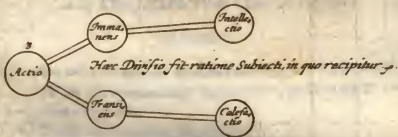 Imma,
nens
Intelle,
ctio
3
Actio
Hæc Divisio fit ratione Subiecti, in quo recipitur
Transi,
ens
Calefa,
ctio